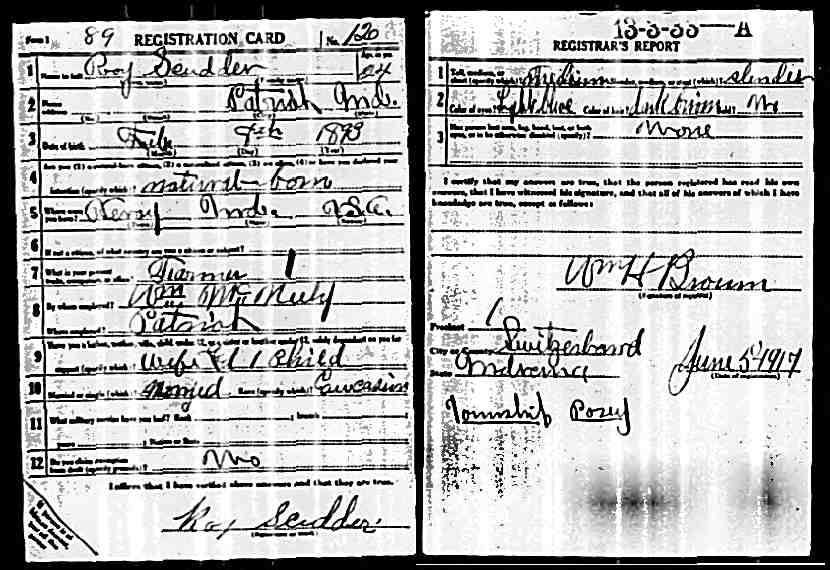 Form 1 89 REGISTRATION CARD No. 120
1 Name in full Roy Scudder Age, in yrs. 24
2 Home address Patriot Ind.
3 Date of birth Feb 1893
4 Are you (1) a natural-born citizen, (2) a naturalized citizen, (3) an alien, (4) or have you declared your
intention (specify which)? natural-born
5 Where were you born? Ind. U.S.A.
6 If not a citizen, of what country are you a citizen or subject?
7 What is your present trade, occupation, or office? Farmer 1
8 By whom employed? Wm
Where employed? Patriot
9 Have you a father, mother, wife, child under 12, or a sister or brother under 12, solely dependent on you for
support (specify which)? Wife & 1 child
10 Married or single (which)? Married Race (specify which)? Caucasian
11 What military service have you had? Rank ; branch
years ; Nation or State
12 Do you claim exemption from draft (specify grounds)? No
I affirm that I have verified above answers and that they are true.
Roy Scudder
13-3-33-A
REGISTRAR'S REPORT
1 Tall, medium, or short (specify which)? Medium Slender, medium, or stout (which)? slender
2 Color of eyes? Light blue Color of hair? dark brown Bald? No
3 Has person lost arm, leg, hand, foot, or both eyes, or is he otherwise disabled (specify)? None
I certify that my answers are true, that the person registered has read his own
answers, that I have witnessed his signature, and that all of his answers of which I have
knowledge are true, except as follows:
Wm H Brown
(Signature of registrar)
Precinct 1
City or County Switzerland
State Indiana
June 5 1917
(Date of registration)
Township Posey